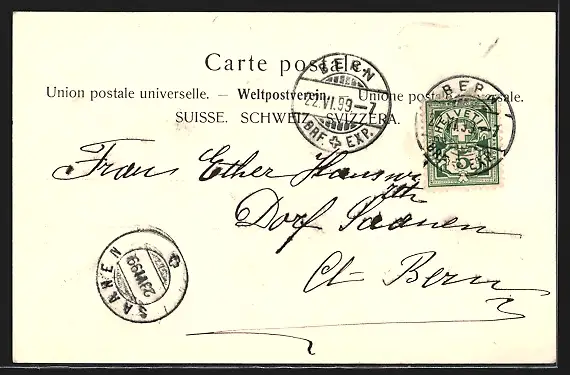 Carte postale.
Union postale universelle. — Weltpostverein. — Unione postale universale.
SUISSE. SCHWEIZ. SVIZZERA.
BERN
22.VI.99-7
BRF. EXP.
BERN
BRF. EXP.
HELVETIA
5
Dorf Saanen
Ct. Bern
SAANEN
23.VI.99